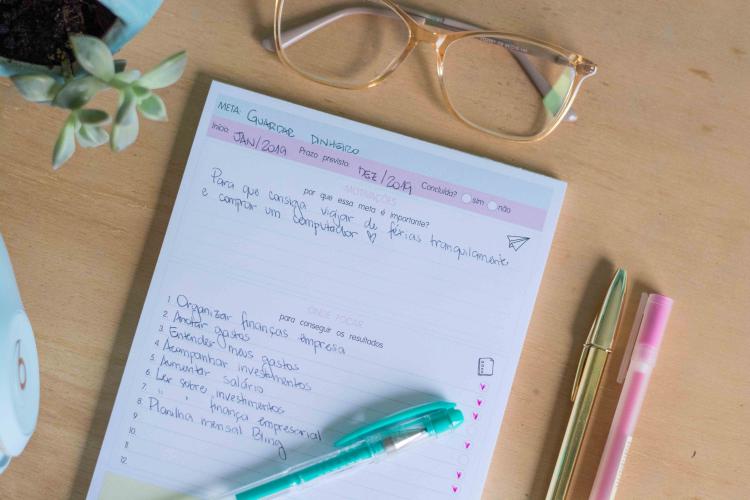 META: GUARDAR DINHEIRO
Início: JAN/2019 Prazo previsto: DEZ/2019 Concluída? sim não
MOTIVAÇÕES
por que essa meta é importante?
Para que consiga viajar de férias tranquilamente
e comprar um computador ♡
ONDE FOCAR
para conseguir os resultados
1. Organizar finanças empresa
2. Anotar gastos
3. Entender meus gastos
4. Acompanhar investimentos
5. Aumentar salário
6. Ler sobre investimentos
7. " " finança empresarial
8. Planilha mensal Bling
9.
10.
11.
12.